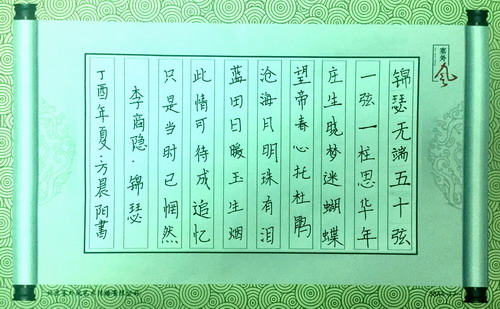 锦瑟无端五十弦
一弦一柱思华年
庄生晓梦迷蝴蝶
望帝春心托杜鹃
沧海月明珠有泪
蓝田日暖玉生烟
此情可待成追忆
只是当时已惘然
李商隐·锦瑟
丁酉年夏·方晨阳书
塞外风